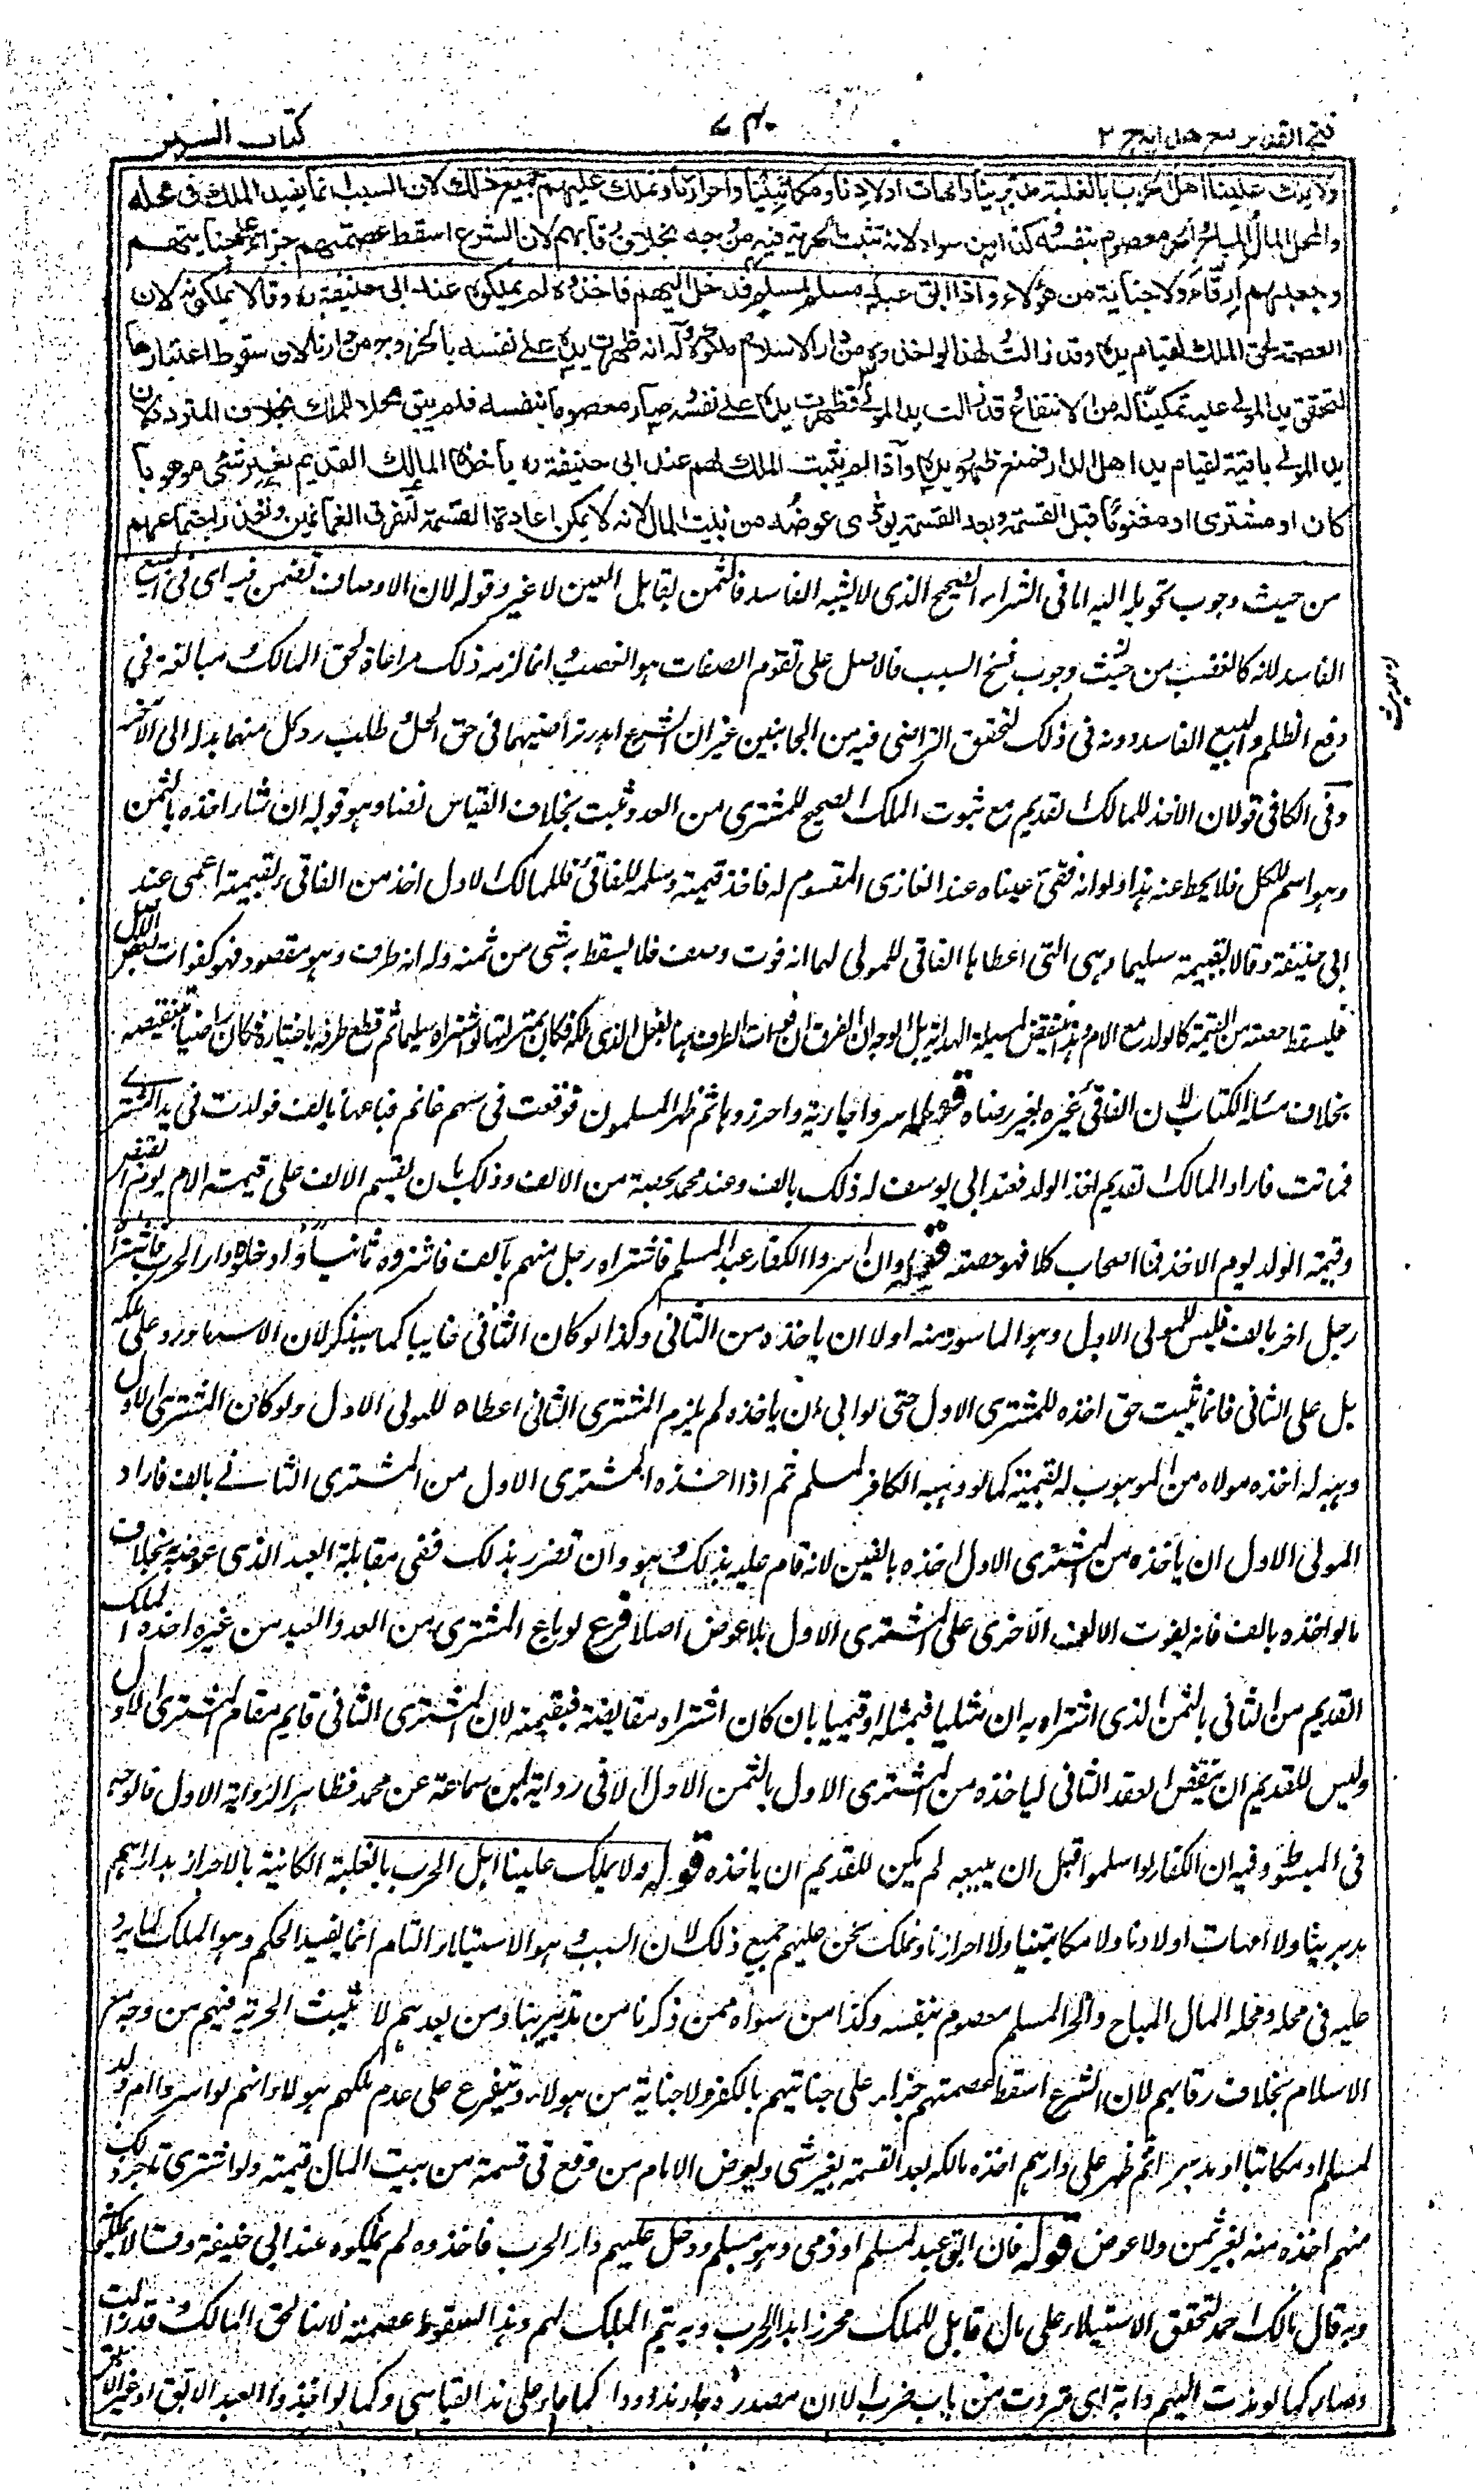 فتح القدير مع هداية ج ٢
٧٤٠
كتاب السير
ولا يملك علينا اهل الحرب بالغلبة مدبرينا وامهات اولادنا ومكاتبينا واحرارنا ونملك عليهم جميع ذلك لان السبب انما يفيد الملك في محله
والمحل المال المباح والحر معصوم بنفسه وكذا من سواه لانه تثبت الحرية فيه من وجه بخلاف رقابهم لان الشرع اسقط عصمتهم جزاء على جنايتهم
وجعلهم ارقاء ولا جناية من هؤلاء واذا ابق عبد مسلم لمسلم فدخل اليهم فاخذوه لم يملكوه عند ابي حنيفة ره وقالا يملكونه لان
العصمة لحق الملك لقيام يده وقد زالت لهذا لو اخذوه من دار الاسلام ملكوه وله انه ظهرت يده على نفسه بالخروج من دارنا لان سقوط اعتبارها
لتحقق يد المولى عليه تمكينا له من الانتفاع وقد زالت يد المولى فظهرت يده على نفسه وصار معصوما بنفسه فلم يبق محلا للملك بخلاف المتردد لان
يد المولى باقية لقيام يد اهل الدار فمنع ظهور يده واذا لم يثبت الملك لهم عند ابي حنيفة ره ياخذه المالك القديم بغير شئ موهوبا
كان او مشترى او مغنوما قبل القسمة وبعد القسمة يؤدى عوضه من بيت المال لانه لا يمكن اعادة القسمة لتفرق الغانمين وتعذر اجتماعهم
من حيث وجوب تحويله اليه اما في الشراء الصحيح الذى لا يشبه الفاسد فالثمن يقابل العين لا غير وقوله لان الاوصاف تضمن فيه اى في البيع
الفاسد لانه كالغصب من حيث وجوب فسخ السبب فالاصل على تقوم الصفات هو الغصب انما لزمه ذلك مراعاة لحق المالك مبالغة في
دفع الظلم والبيع الفاسد دونه في ذلك لتحقق التراضى فيه من الجانبين غير ان الشرع اهدر تراضيهما في حق الحل وطلب رد كل منهما بدله الى الآخر
وفى الكافى قولان الاخذ للمالك القديم مع ثبوت الملك الصحيح للمشترى من العدو ثبت بخلاف القياس نصا وهو قوله ان شاء اخذه بالثمن
وهو اسم للكل فلا يحط عنه هذا ولو انه فقئ عيناه عند الغازى المقسوم له فاخذ قيمته وسلمه للفاقئ فللمالك الاول اخذ من الفاقئ بقيمته اعمى عند
ابي حنيفة وقالا بقيمته سليما وهى التى اعطاها الفاقئ للمولى لهما انه فوت وصف فلا يسقط به شئ من ثمنه وله انه طرف وهو مقصود فهو كفوات بعض الاصل
فيسقط حصته من القيمة كالولد مع الام وهذا ينقض لمسئلة الهداية بل الوجه ان الفرق ان فوات الطرف هنا بفعل الذى ملكه فكان بمنزلة ما لو اشتراه سليما ثم قطع طرفه باختياره فكان راضيا بتنقيصه
بخلاف مسئلة الكتاب لان الفاقئ غيره بغير رضاه فروع اسروا جارية واحرزوها ثم ظهر المسلمون فوقعت في سهم غانم فباعها بالف فولدت في يد المشترى
فماتت فاراد المالك القديم اخذ الولد فعند ابي يوسف له ذلك بالف وعند محمد بحصته من الالف وذلك بان يقسم الالف على قيمة الام يوم القبض
وقيمة الولد يوم الاخذ فما اصاب كلا فهو حصته قوله وان اسروا الكفار عبد المسلم فاشتراه رجل منهم بالف فاسروه ثانيا وادخلوه دار الحرب فاشتراه
رجل اخر بالف فليس للمولى الاول وهو الماسور منه اولا ان ياخذه من الثانى وكذا لو كان الثانى غايبا كما سيذكر لان الاسر ما ورد على ملكه
بل على الثانى فانما يثبت حق اخذه للمشترى الاول حتى لو ابى ان ياخذه لم يلزم المشترى الثانى اعطاه للمولى الاول ولو كان المشترى الاول
وهبه له اخذه مولاه من الموهوب له بقيمته كما لو وهبه الكافر لمسلم ثم اذا اخذه المشترى الاول من المشترى الثانى بالف فاراد
المولى الاول ان ياخذه من المشترى الاول اخذه بالفين لانه قام عليه بذلك وهو وان تضرر بذلك ففى مقابلة العبد الذى عوضه بخلاف
ما لو اخذه بالف فانه يفوت الالف الاخرى على المشترى الاول بلا عوض اصلا فرع لو باع المشترى من العدو العبد من غيره اخذه المالك
القديم من الثانى بالثمن الذى اشتراه به ان مثليا فبمثله او قيميا بان كان اشتراه مقايضة فبقيمته لان المشترى الثانى قايم مقام المشترى الاول
وليس للقديم ان ينقض العقد الثانى لياخذه من المشترى الاول بالثمن الاول الا في رواية ابن سماعة عن محمد فظاهر الرواية الاول والوجه
في المبسوط وفيه ان الكفار لو اسلموا قبل ان يبيعه لم يكن للقديم ان ياخذه قوله ولا يملك علينا اهل الحرب بالغلبة الكائنة بالاحراز بدارهم
مدبرينا ولا امهات اولادنا ولا مكاتبينا ولا احرارنا ونملك نحن عليهم جميع ذلك لان السبب وهو الاستيلاء التام انما يفيد الحكم وهو الملك لما يرد
عليه في محله ومحله المال المباح والحر المسلم معصوم بنفسه وكذا من سواه ممن ذكرنا من مدبرينا ومن بعدهم لا تثبت الحرية فيهم من وجه مع
الاسلام بخلاف رقابهم لان الشرع اسقط عصمتهم جزاء على جنايتهم بالكفر ولا جناية من هولاء ويتفرع على عدم ملكهم هولاء انهم لو اسروا ام ولد
لمسلم او مكاتبا او مدبرا ثم ظهر على دارهم اخذه مالكه بعد القسمة بغير شئ ويعوض الامام من وقع في قسمة من بيت المال قيمته ولو اشترى تاجر ذلك
منهم اخذه منه بغير ثمن ولا عوض قوله فان ابق عبد لمسلم او ذمى وهو مسلم ودخل عليهم دار الحرب فاخذوه لم يملكوه عند ابي حنيفة وقالا يملكونه
وبه قال مالك احمد لتحقق الاستيلاء على مال قابل للملك محرز ابدار الحرب وبه يتم الملك لهم وهذا لسقوط عصمته لانها لحق المالك وقد زالت
وصار كما لو ندت اليهم دابة اى شردت من باب ضرب الا ان مصدره جاء ندودا كما جاء على ندا القياسى وكما لو اخذوا العبد الابق او غير الابق